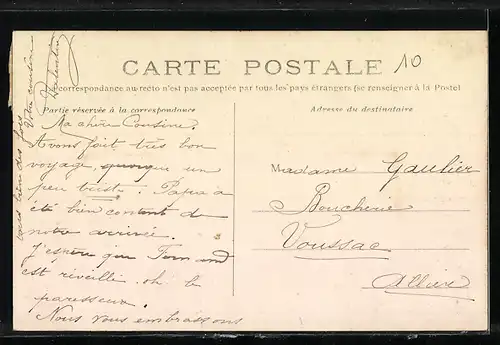 CARTE POSTALE
10
correspondance au recto n'est pas acceptée par tous les pays étrangers (se renseigner à la Poste)
Partie réservée à la correspondance
Adresse du destinataire
Ma chère Cousine.
Avons fait très bon
voyage, quoique un
peu triste. Papa a
été bien content de
notre arrivée.
J'espère que Fernand
est réveillé oh. le
paresseux.
Nous vous embrassons
tous bien des fois
Votre cousine
Valentine
Madame Gaulier
Boucherie
Voussac
Allier